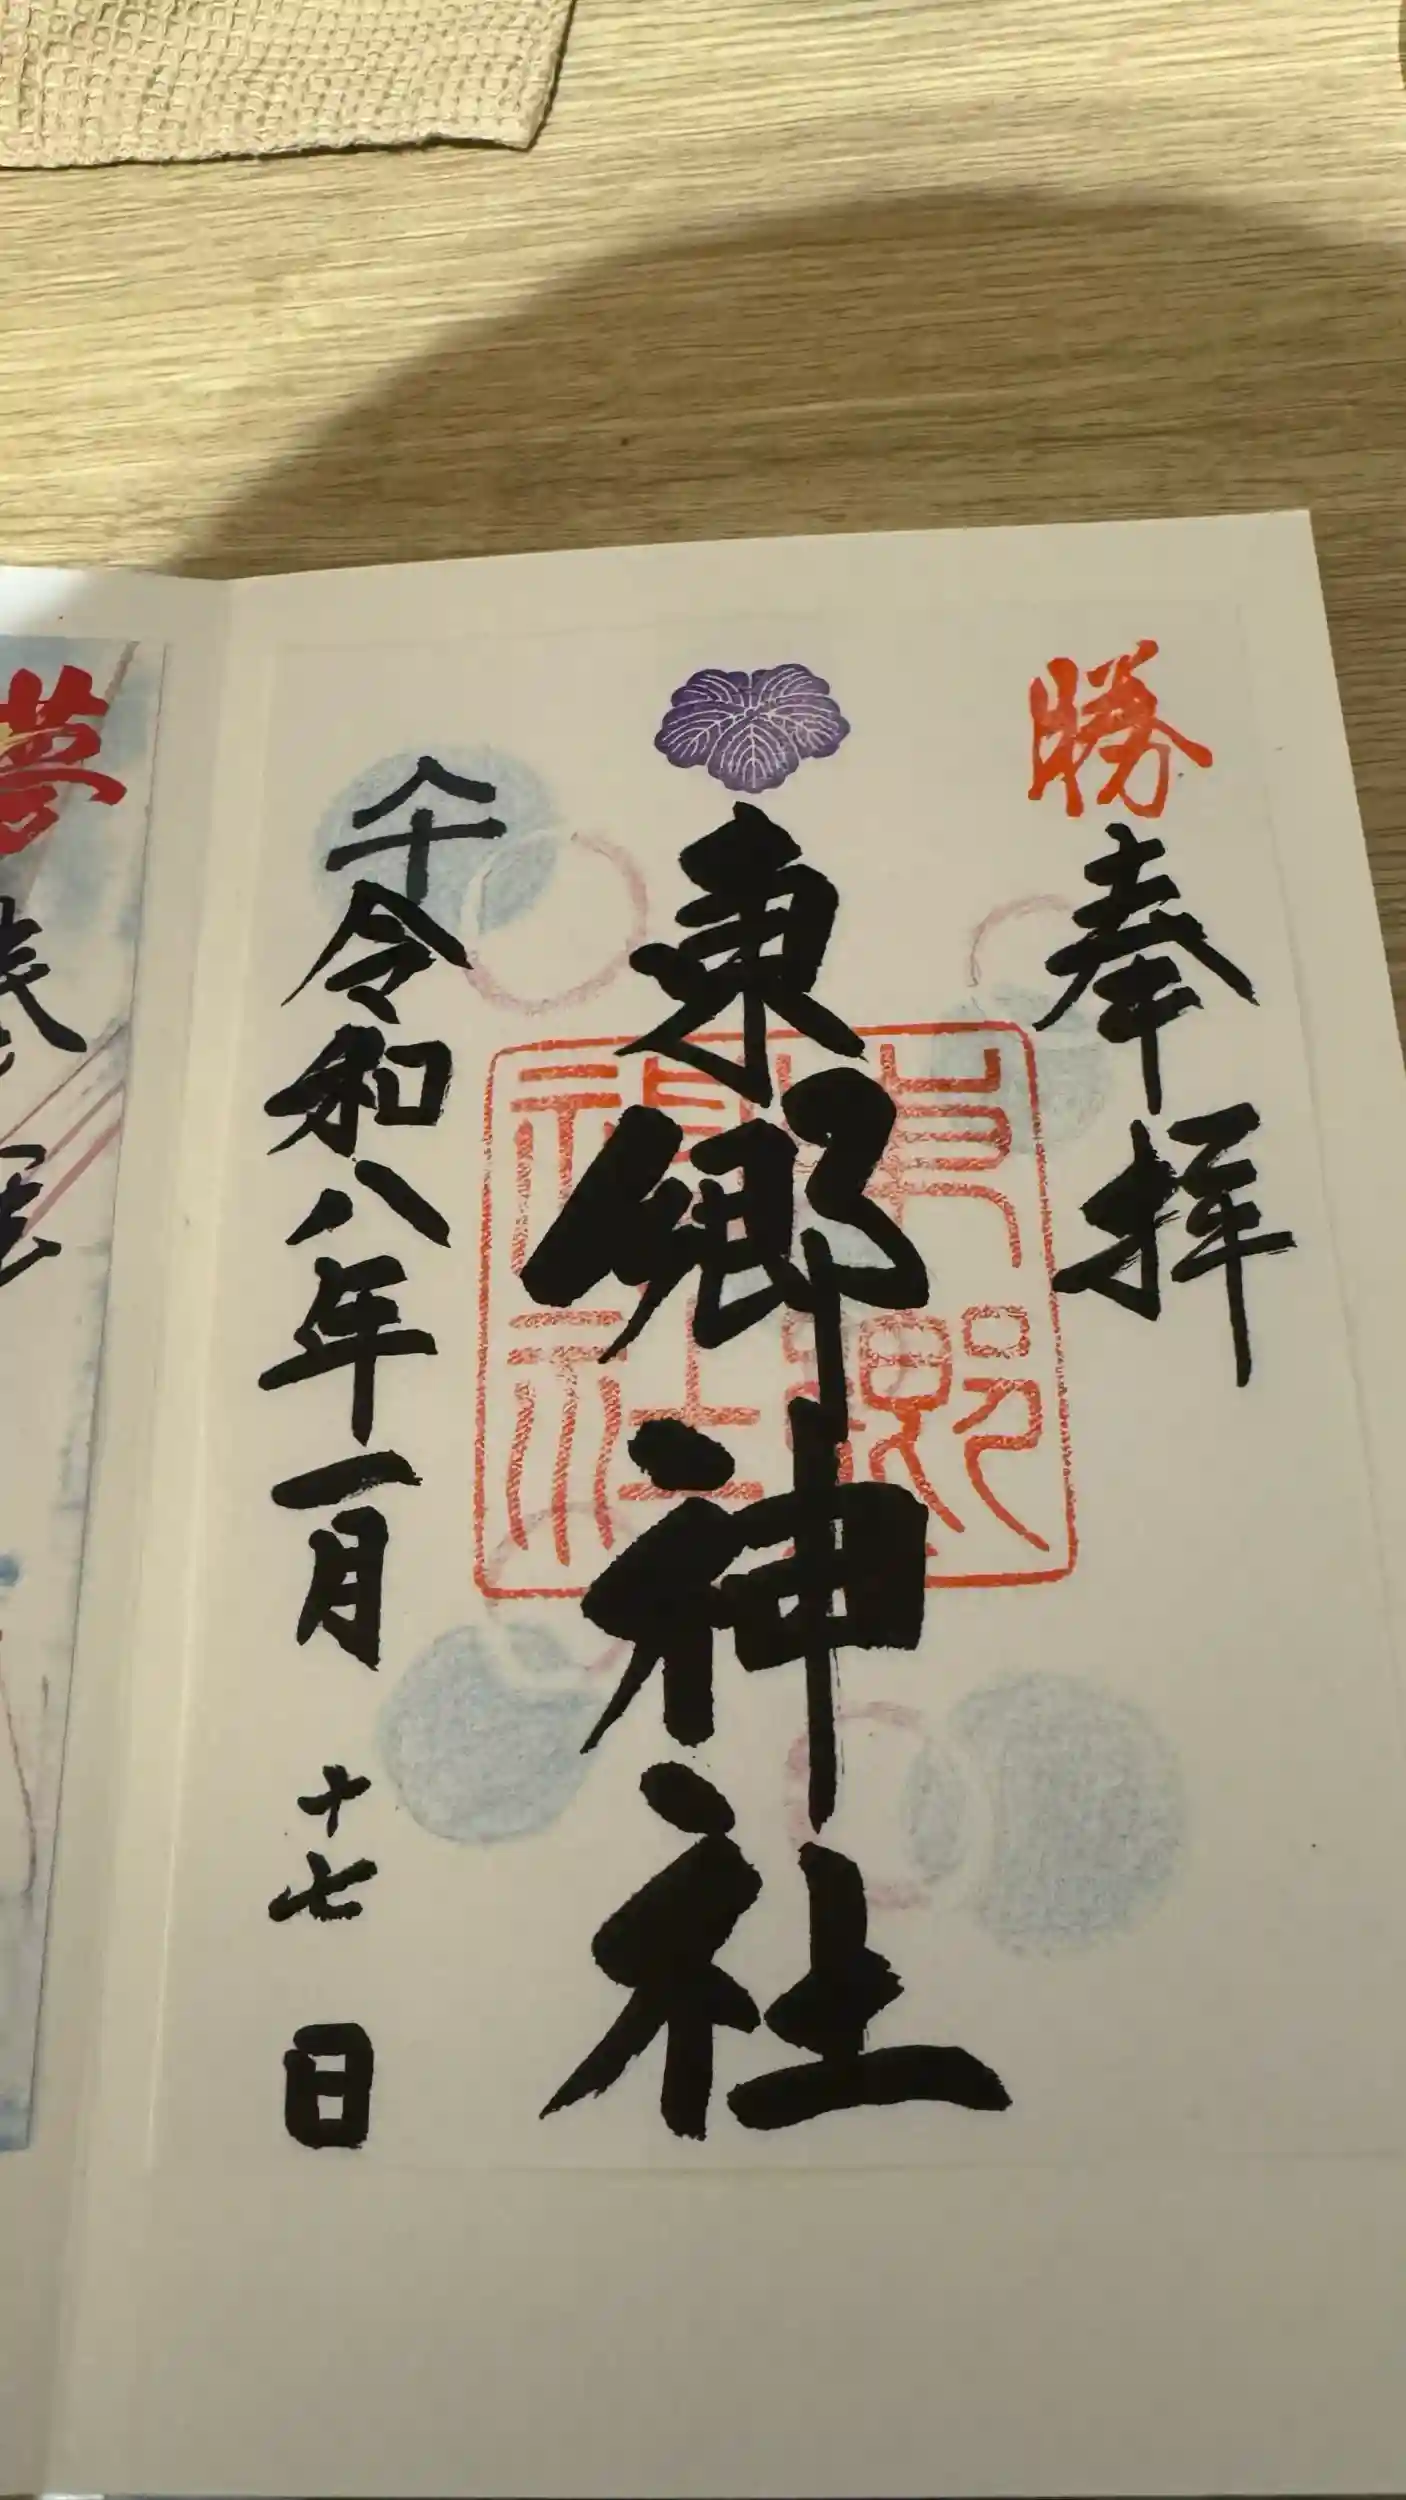 勝
奉拝
東郷神社
東郷
神社
午
令和八年一月十七日